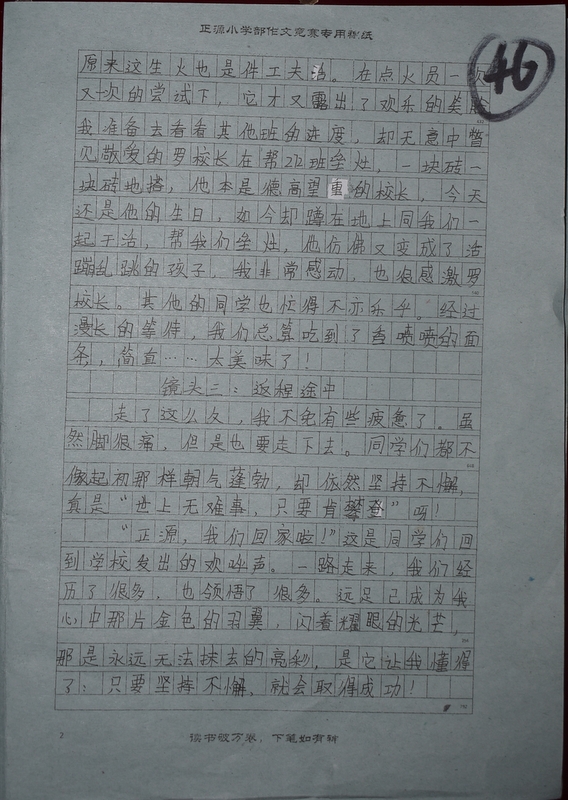 正源小学部作文竞赛专用稿纸
46
原来这生火也是件工夫活。在点火员一次
又一次的尝试下，它才又露出了欢乐的笑脸
我准备去看看其他班的进度，却无意中瞥
见敬爱的罗校长在帮212班垒灶，一块砖一
块砖地搭，他本是德高望重的校长，今天
还是他的生日，如今却蹲在地上同我们一
起干活，帮我们垒灶，他仿佛又变成了活
蹦乱跳的孩子，我非常感动，也很感激罗
校长。其他的同学也忙得不亦乐乎。经过
漫长的等待，我们总算吃到了香喷喷的面
条，简直……太美味了！
镜头三：返程途中
走了这么久，我不免有些疲惫了。虽
然脚很痛，但是也要走下去。同学们都不
像起初那样朝气蓬勃，却依然坚持不懈，
真是“世上无难事，只要肯攀登”呀！
“正源，我们回家啦！”这是同学们回
到学校发出的欢呼声。一路走来，我们经
历了很多，也领悟了很多。远足已成为我
心中那片金色的羽翼，闪着耀眼的光芒，
那是永远无法抹去的亮彩，是它让我懂得
了：只要坚持不懈、就会取得成功！
2
读书破万卷，下笔如有神